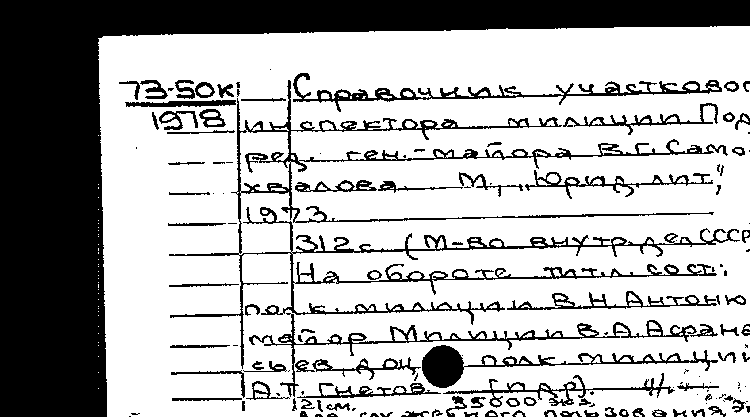 73-50к Справочник участково
1978 инспектора милиции Под
ред. ген.-майора В.Г. Само-
хвалова М., "Юрид. лит.",
1973.
312 с. (М-во внутр. дел СССР
На обороте тит. л. сост.:
полк. милиции В.Н. Антоню
майор Милиции В.А. Афана
сьев, доц. полк. милиции
А.Т. Гнетов [и др.].
21 см. 35000 экз.
служебного пользования